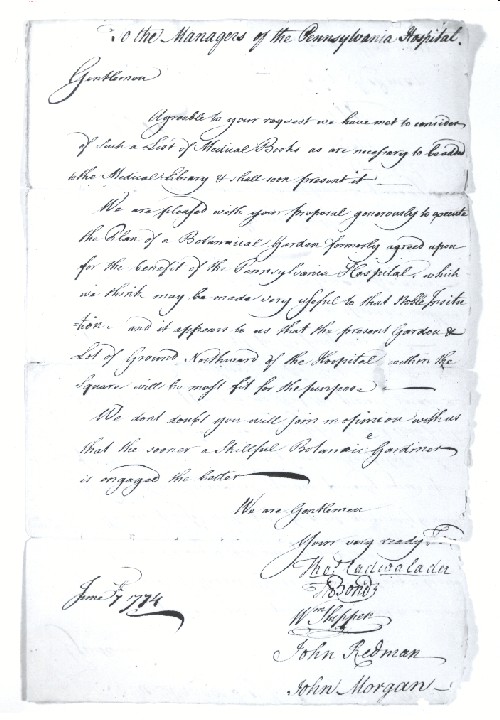 To the Managers of the Pennsylvania Hospital.
Gentlemen
Agreeable to your request we have met to consider
of such a List of Medical Books as are necessary to be added
to the Medical Library & shall soon present it
We are pleased with your proposal generously to execute
the Plan of a Botanical Garden formerly agreed upon
for the benefit of the Pennsylvania Hospital, which
we think may be made very useful to that Noble Institu
tion. and it appears to us that the present Garden &
Lot of Ground Northward of the Hospital, within the
Square will be most fit for the purpose.
We dont doubt you will join in opinion with us
that the sooner a Skillful Botanic Gardiner
is engaged the better
We are Gentlemen
Your very ready
Thos Cadwalader
Bond
Wm Shippen
June 7 1774
John Redman
John Morgan